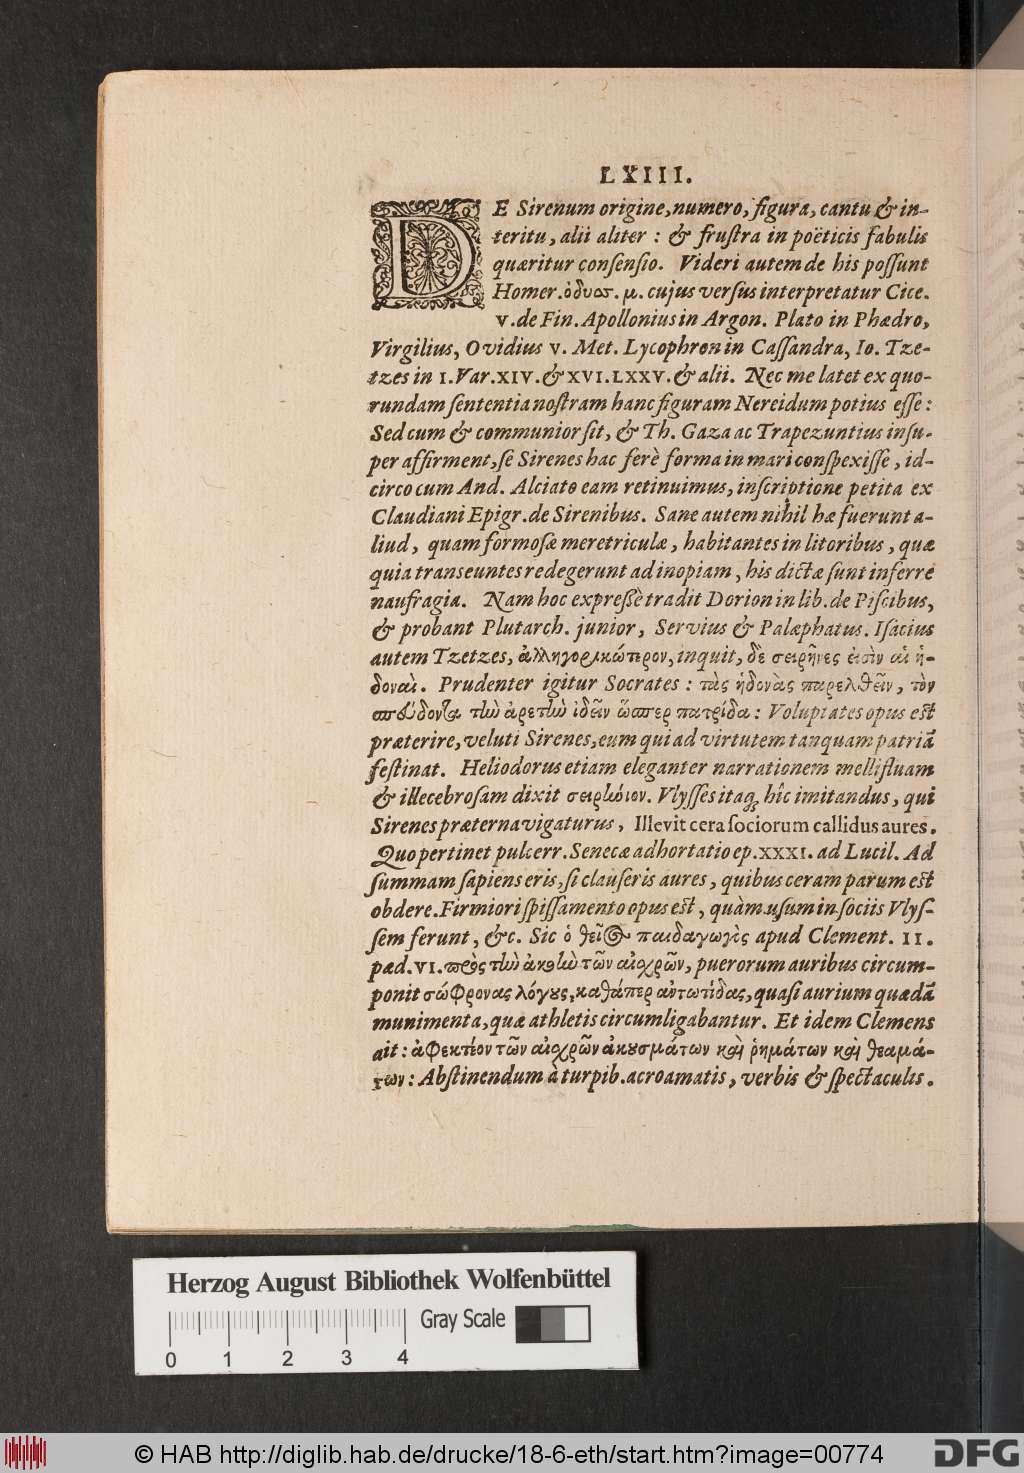 LXIII.
DE Sirenum origine, numero, figura, cantu & in-
teritu, alii aliter : & frustra in poëticis fabulis
quæritur consensio. Videri autem de his possunt
Homer. ὀδυσ. μ. cujus versus interpretatur Cice.
V. de Fin. Apollonius in Argon. Plato in Phædro,
Virgilius, Ovidius V. Met. Lycophron in Cassandra, Io. Tze-
tzes in I. Var. XIV. & XVI. LXXV. & alii. Nec me latet ex quo-
rundam sententia nostram hanc figuram Nereidum potius esse:
Sed cum & communior sit, & Th. Gaza ac Trapezuntius insu-
per affirment, se Sirenes hac ferè forma in mari conspexisse, id-
circo cum And. Alciato eam retinuimus, inscriptione petita ex
Claudiani Epigr. de Sirenibus. Sane autem nihil hæ fuerunt a-
liud, quam formosæ meretriculæ, habitantes in litoribus, quæ
quia transeuntes redegerunt ad inopiam, his dictæ sunt inferre
naufragia. Nam hoc expressè tradit Dorion in lib. de Piscibus,
& probant Plutarch. junior, Servius & Palæphatus. Isacius
autem Tzetzes, ἀλληγορικώτερον, inquit, δὲ σειρῆνες εἰσὶν αἱ ἡ-
δοναὶ. Prudenter igitur Socrates : τὰς ἡδονὰς παρελθεῖν, τὸν
σπεύδοντα τὴν ἀρετὴν ἰδεῖν ὥσπερ πατρίδα : Voluptates opus est
præterire, veluti Sirenes, eum qui ad virtutem tanquam patriã
festinat. Heliodorus etiam eleganter narrationem mellifluam
& illecebrosam dixit σειρήνιον. Vlysses itaq; hîc imitandus, qui
Sirenes præternavigaturus, Illevit cera sociorum callidus aures.
Quo pertinet pulcerr. Senecæ adhortatio ep. XXXI. ad Lucil. Ad
summam sapiens eris, si clauseris aures, quibus ceram parum est
obdere. Firmiori spissamento opus est, quàm usum in sociis Vlys-
sem ferunt, &c. Sic ὁ θεῖος παιδαγωγὸς apud Clement. II.
pæd. VI. πρὸς τὴν ἀκοὴν τῶν αἰσχρῶν, puerorum auribus circum-
ponit σώφρονας λόγους, καθάπερ αὐτωτίδας, quasi aurium quædã
munimenta, quæ athletis circumligabantur. Et idem Clemens
ait : ἀφεκτέον τῶν αἰσχρῶν ἀκουσμάτων καὶ ῥημάτων καὶ θεαμά-
των : Abstinendum à turpib. acroamatis, verbis & spectaculis.
Herzog August Bibliothek Wolfenbüttel
Gray Scale
0 1 2 3 4
© HAB http://diglib.hab.de/drucke/18-6-eth/start.htm?image=00774
DFG